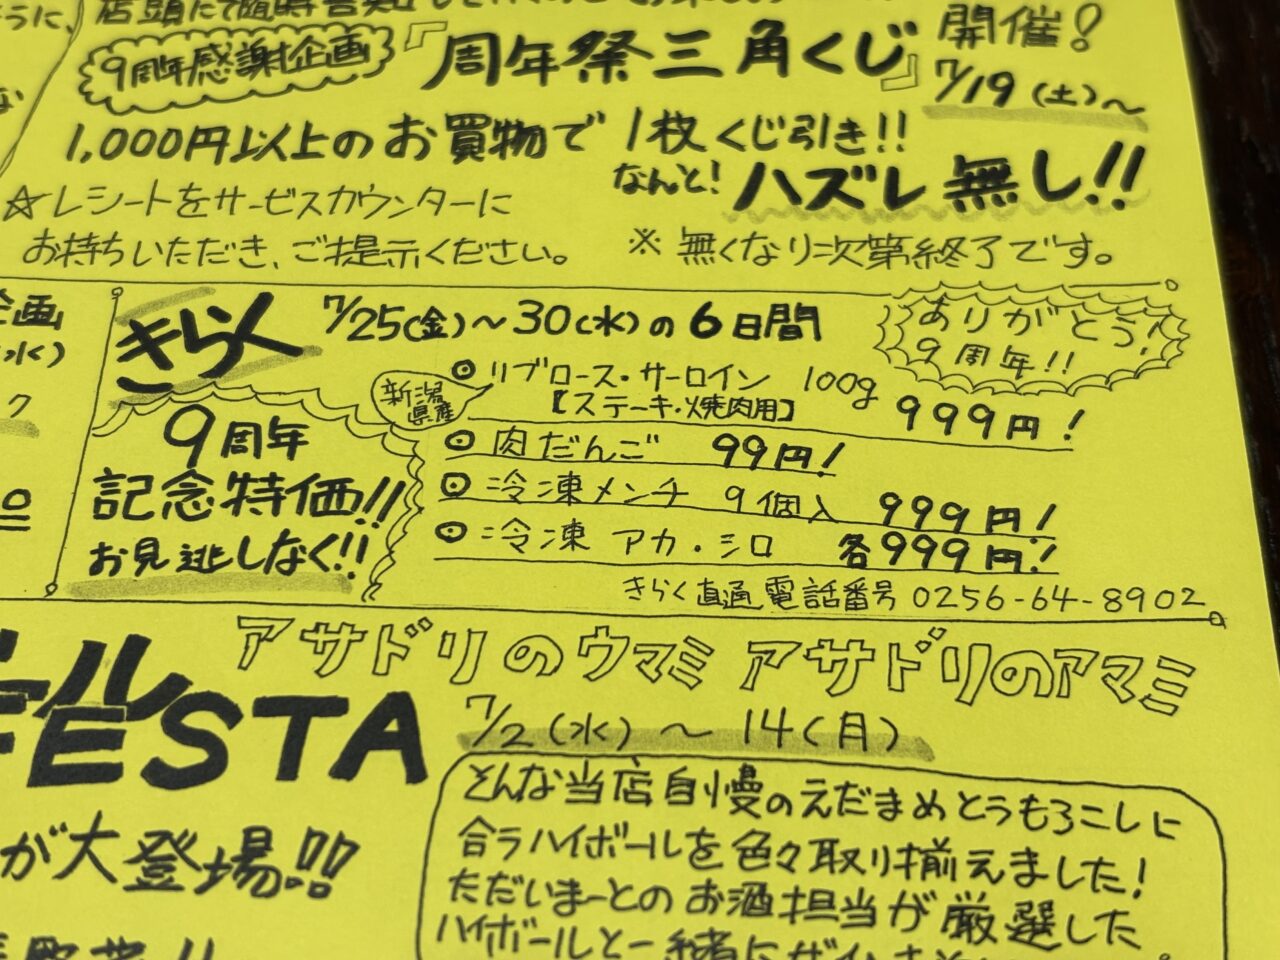 9周年感謝企画
『周年祭三角くじ』
開催!
7/19(土)~
1,000円以上のお買物で 1枚くじ引き!!
なんと! ハズレ無し!!
☆レシートをサービスカウンターに
お持ちいただき、ご提示ください。
※無くなり次第終了です。
企画
(水)
きらく
7/25(金)~30(水)の6日間
ありがとう!
9周年!!
9周年
記念特価!!
お見逃しなく!!
新潟
県産
◎リブロース・サーロイン 100g
【ステーキ・焼肉用】 999円!
◎肉だんご 99円!
◎冷凍メンチ 9個入 999円!
◎冷凍 アカ・シロ 各999円!
きらく直通電話番号 0256-64-8902
アサドリのウマミ アサドリのアマミ
FESTA
7/2(水)~14(月)
が大登場!!
とんな当店自慢のえだまめとうもろこしに
合うハイボールを色々取り揃えました!
ただいまーとのお酒担当が厳選した
ハイボールと一緒に